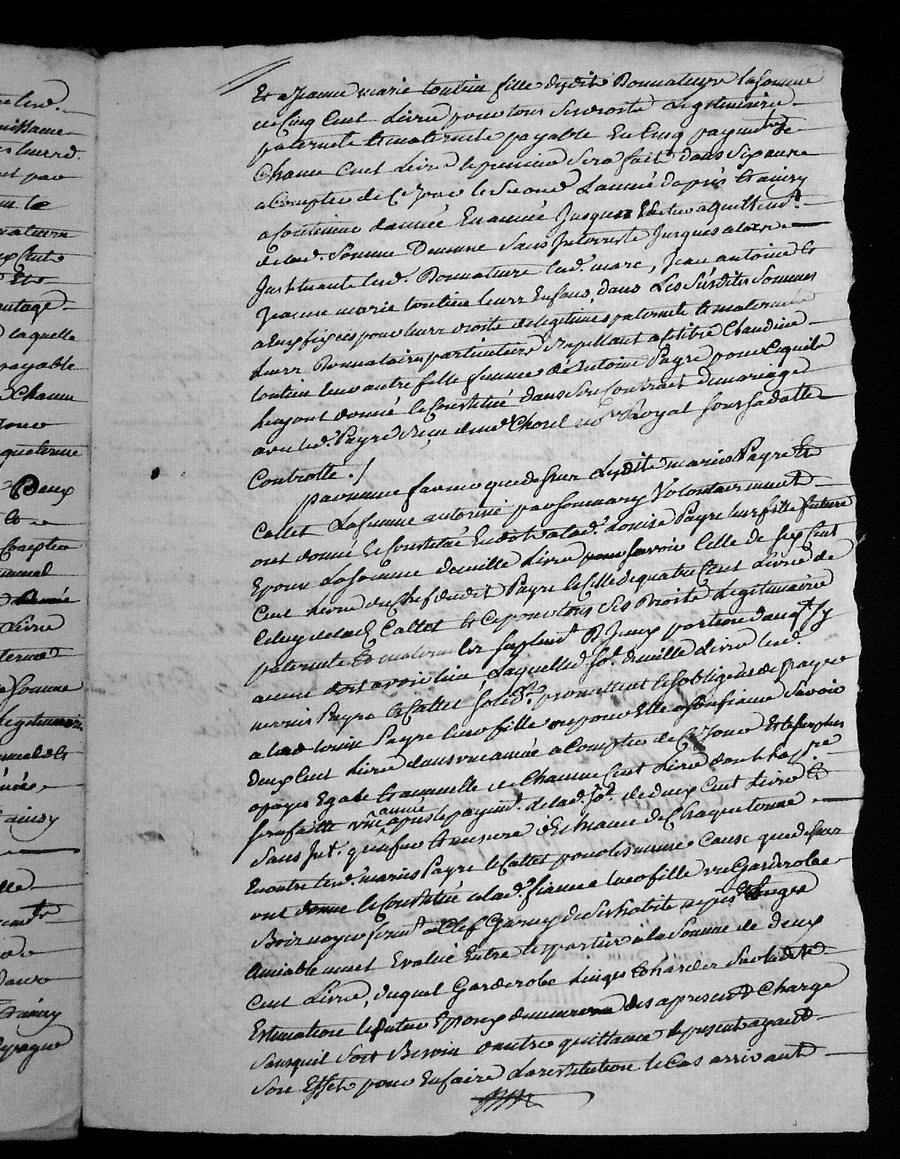 Et a Jeanne marie toutin fille dudit Donnateure la somme
de Cinq Cent Livre pour tous ses droits Legitimaire
paternele & maternele payable En Cinq payment de
Chacun Cent Livre le premier sera fait dans six anne
a Compter de Ce Jour le second Lannée daprès & ainsy
a Continuer dannée En année Jusques
de lad. somme Demeure sans Interrests Jusques alors
Instituants lesd. Donnateure lesd. marc, Jean antoine &
Jeanne marie toutin leurs Enfans, dans Les susdites sommes
a Eux fixées pour leurs droits de legitimes paternele & maternele
Leurs Donnataires particuliers Rapellant a Claudine
toutin leur autre fille femme de antoine Payre pour Ce quils
luy ont donné & Constitué dans son Contract de mariage
avec led. Payre Recu de me. Chorel no.re Royal sous sa datte
Controlle ./.
par meme faveur que dessus Lesdits mariés Payre &
Callet La femme autorisé par son mary Volontairement
ont donné & Constitué En dot a lad. Louise Payre leur fille future
Epouse La somme de mille Livre savoir Celle de six Cent
Cent Livre du Chef dudit Payre & Celle de quatre Cent Livre de
Celuy de lad. Callet & Ce pour tous ses Droits Legitimaire
paternele & maternele suplem.t Diceux portions daugt. sy
aucune doit avoir lieu Laquelle so.e de mille Livre lesd.
mariés Payre & Callet solid.t promettent & sobligent de payer
a lad. Louise Payre leur fille ou pour Elle a son fiance savoir
Deux Cent Livre dans une année a Compter de Ce Jour Et le surplus
a payes Egale & annuelle de Chacune Cent Livre dont la p.re
sera faitte une année apres le paym.t de lad. so.e de deux Cent Livre &
sans Int. qua fur & mesure dEcheance de Chaque terme
En outre lesd. mariés Payre & Callet pour la meme Cause que dessus
ont donné & Constitué a lad. fiancé leur fille un Garderobe
Bois noyer ferm.t a Clef Garny de ses habits nipes & linges
amiablement Evalué Entre les parties a la somme de deux
Cent Livre, duquel Garderobe Linges & hardes sur ladite
Estimation le futur Epoux demeurera des apresent Chargé
sans quil soit Besoin dautre quittance le present ayant
son Effet pour En faire La restitution le Cas arrivant